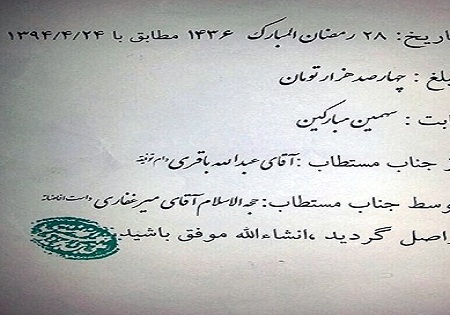 اریخ: ۲۸ رمضان المبارک ۱۴۳۶ مطابق با ۱۳۹۴/۴/۲۴
بلغ : چهارصد هزار تومان
ابت : سهمین مبارکین
ز جناب مستطاب : آقای عبدالله باقری دام توفیقه
وسط جناب مستطاب: حجة الاسلام آقای میرغفاری دامت افاضاته
اصل گردید ،انشاءالله موفق باشید.